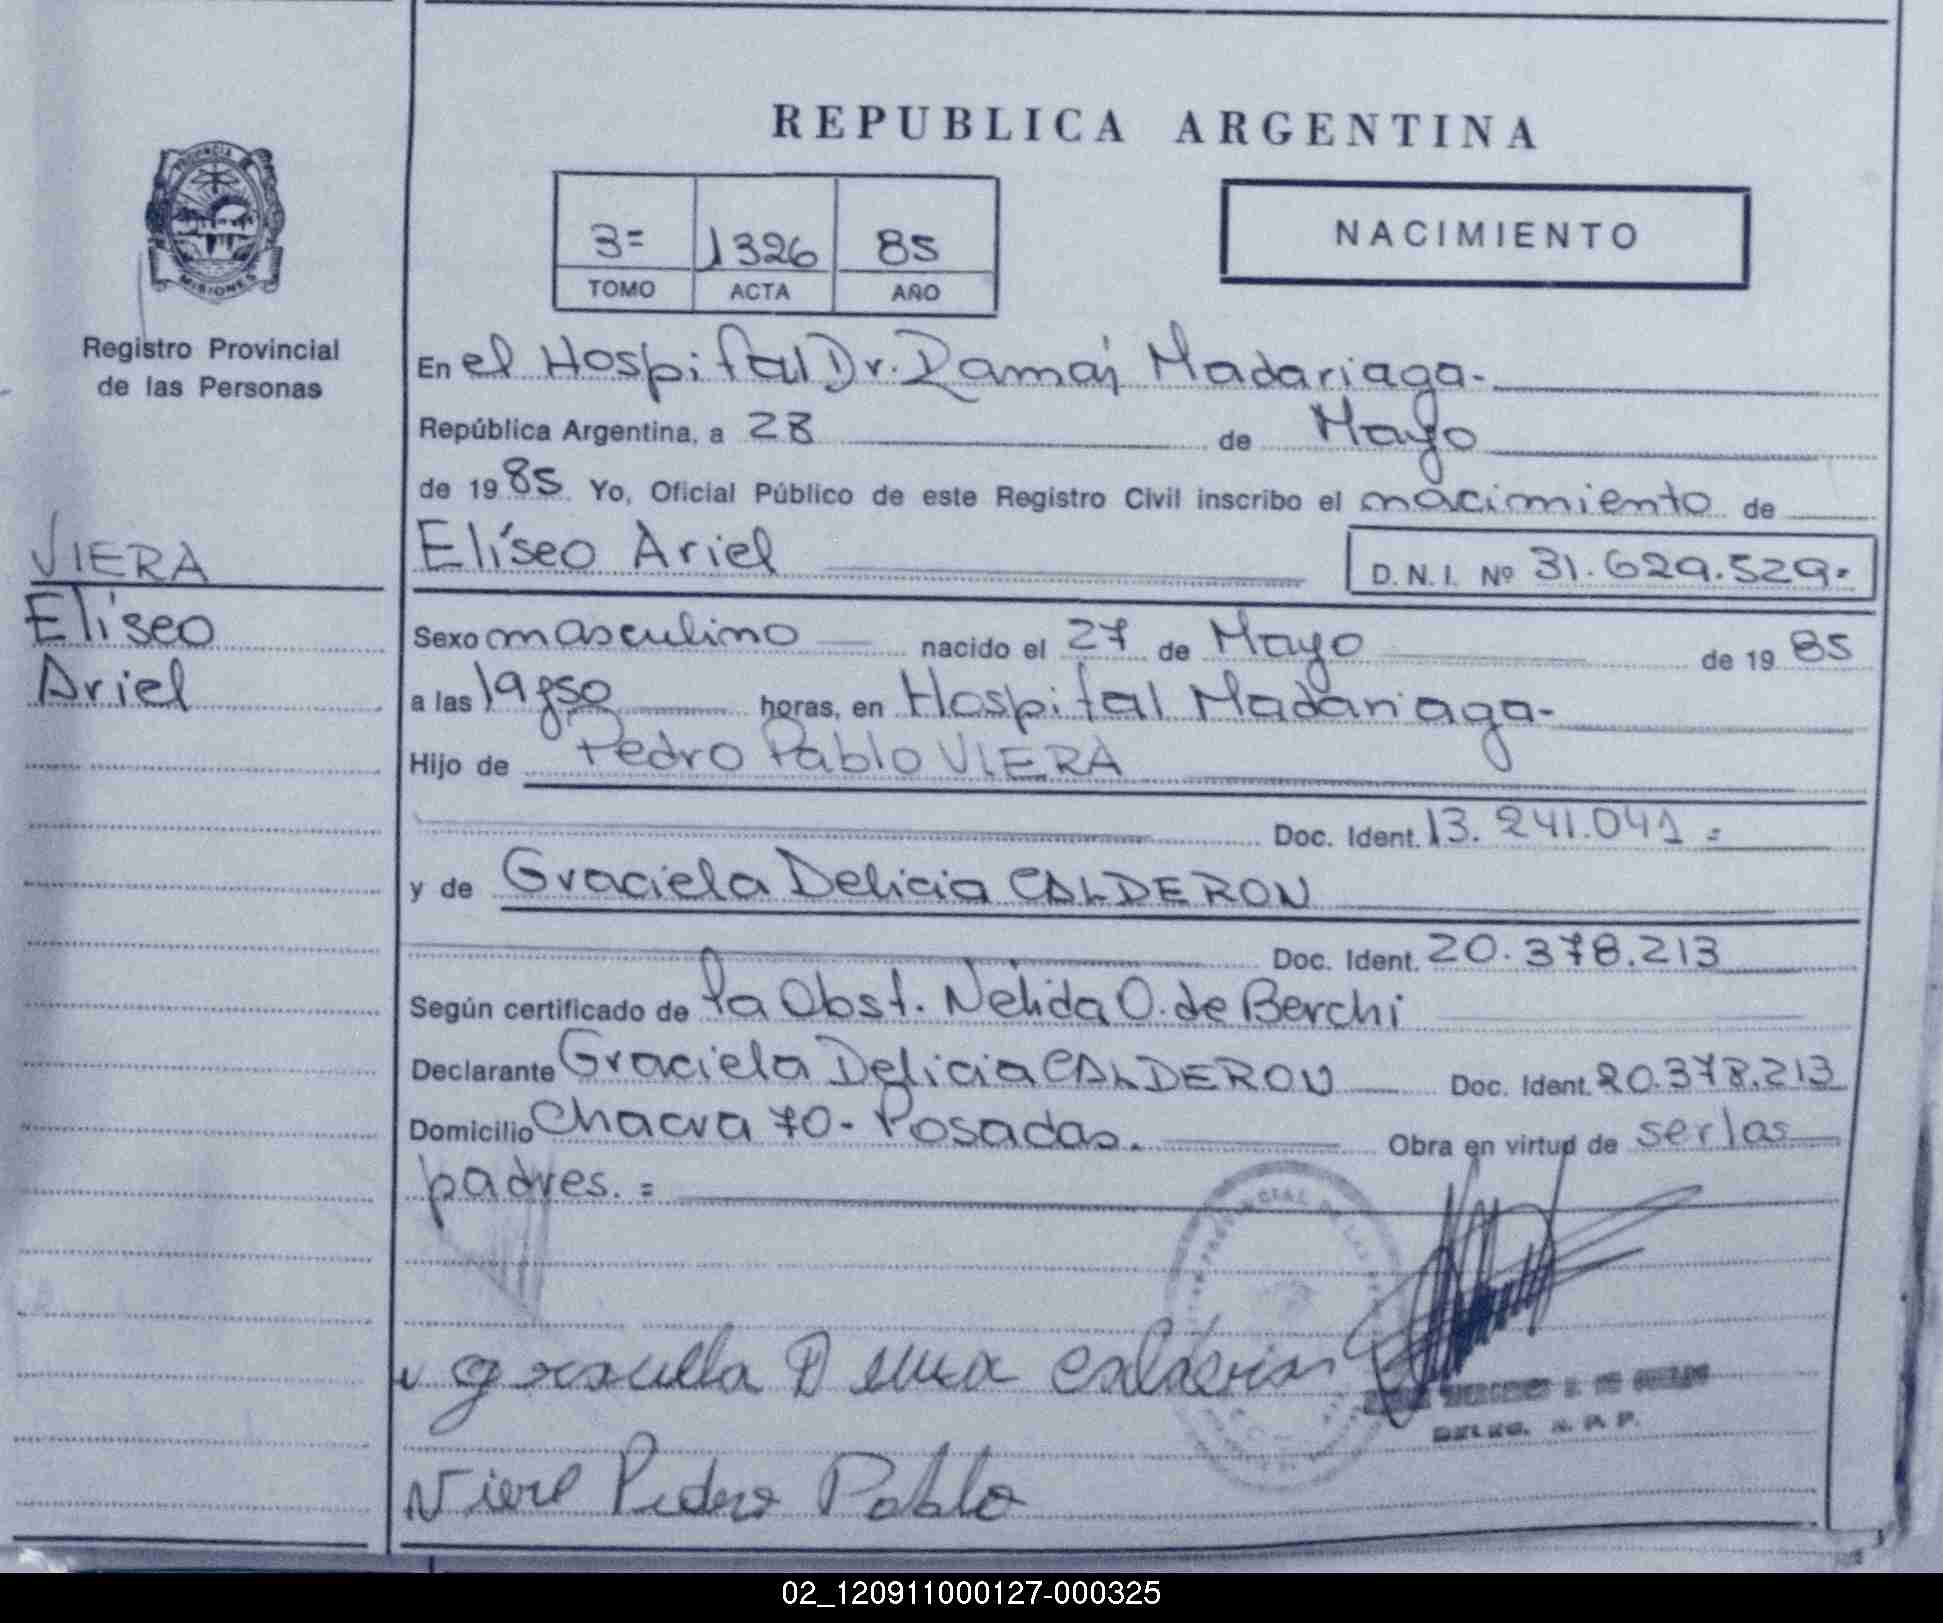 REPUBLICA ARGENTINA
PROVINCIA DE
MISIONES
Registro Provincial
de las Personas
3= 1326 85
TOMO ACTA AÑO
NACIMIENTO
En el Hospital Dr. Ramón Madariaga.
República Argentina, a 28 de Mayo
de 1985 Yo, Oficial Público de este Registro Civil inscribo el nacimiento de
VIERA
Eliseo
Ariel
Elíseo Ariel D.N.I. Nº 31.629.529.
Sexo masculino nacido el 27 de Mayo de 1985
a las 19 y 50 horas, en Hospital Madariaga-
Hijo de Pedro Pablo VIERA
Doc. Ident. 13.241.041 =
y de Graciela Delicia CALDERON
Doc. Ident. 20.378.213
Según certificado de la Obst. Nélida O. de Berchi
Declarante Graciela Delicia CALDERON Doc. Ident. 20.378.213
Domicilio Chacra 70- Posadas. Obra en virtud de ser los
padres. =
Calderon
DELEG. R. P. P.
Viera Pedro Pablo
02_120911000127-000325